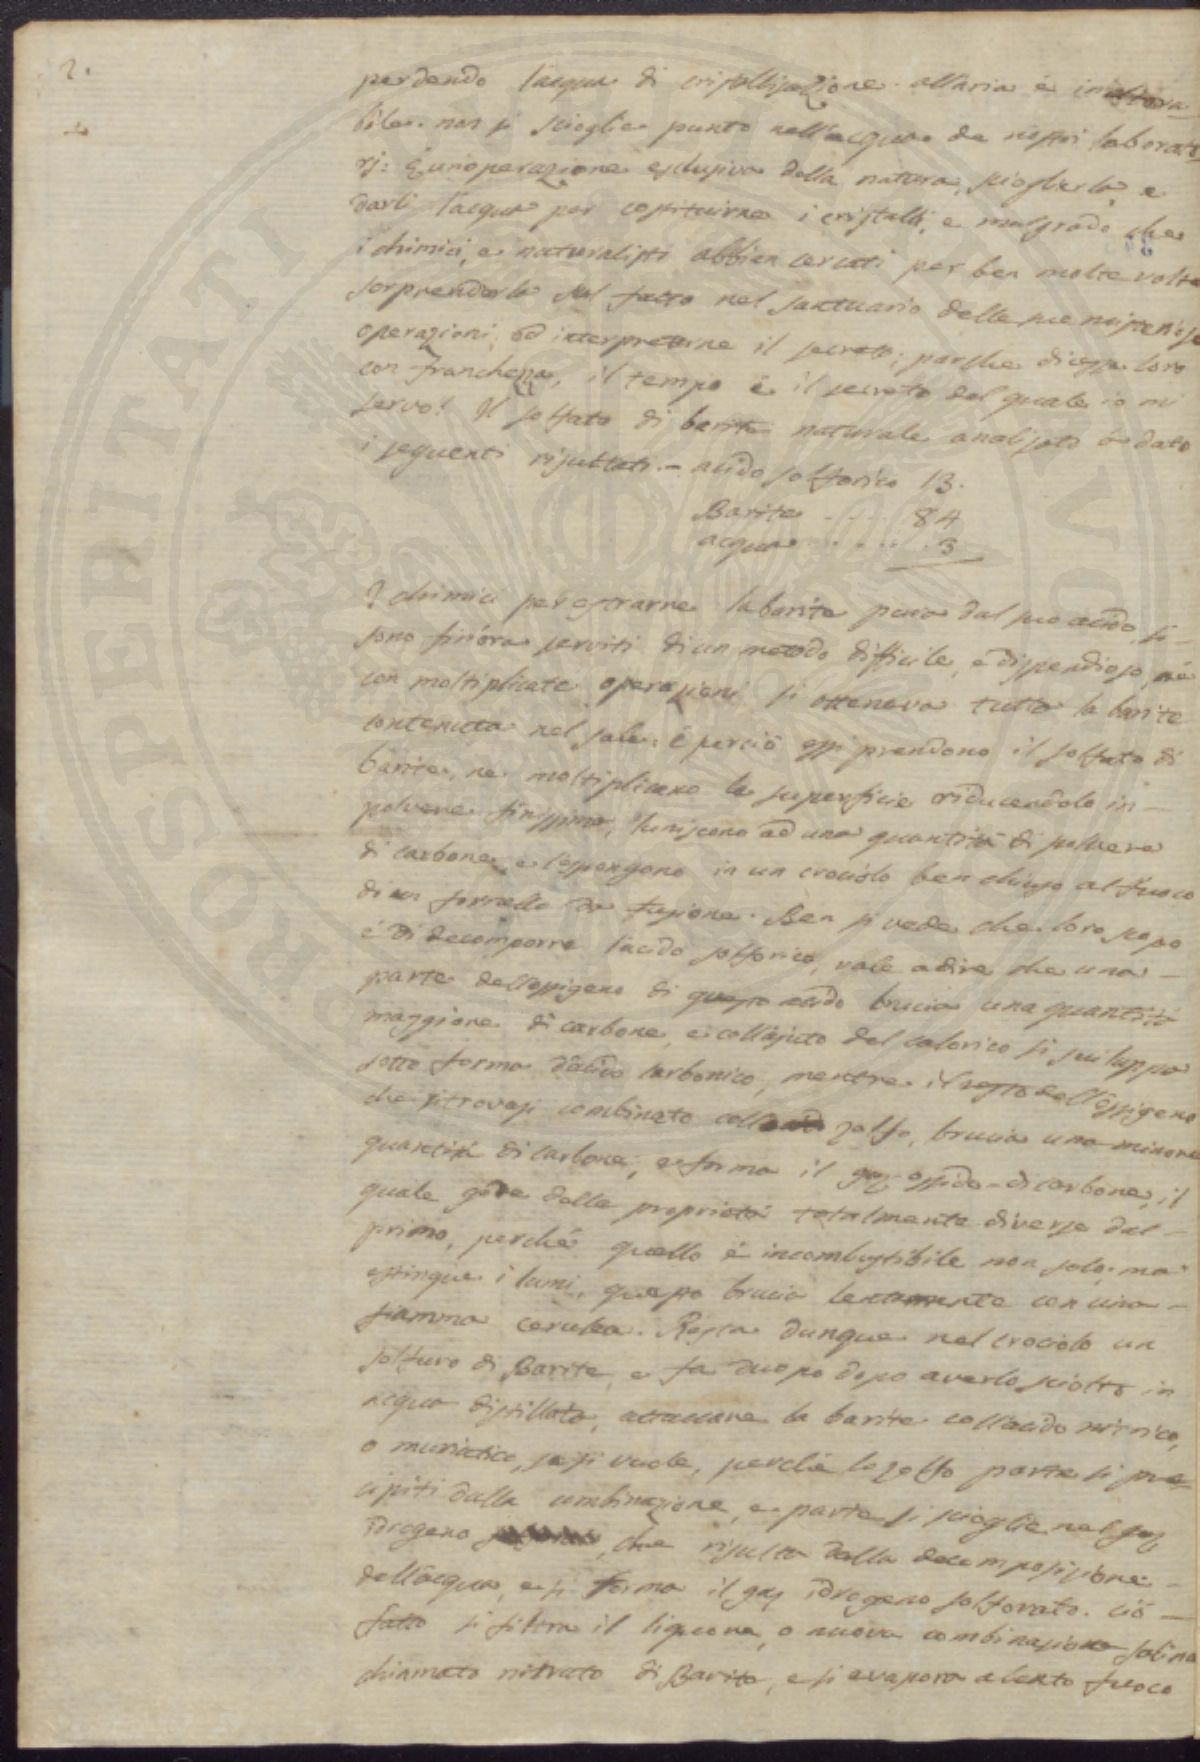 2.
perdendo l'acqua di cristallizzazione. all'aria è inaltera-
bile. non si scioglie punto nell'acqua de nostri laborato
rj: È un'operazione esclusiva della natura scioglierla, e
darli l'acqua per costituirne i cristalli, e malgrado che
i chimici, e naturalisti abbian cercati per ben molte volte
sorprenderla sul fatto nel santuario delle sue misteriose
operazioni, ed interpretarne il secreto; parche dicesse loro
con franchezza, il tempo è il secreto del quale io mi
servo! Il solfato di barite naturale analizzato à dato
i seguenti risultati. - acido solforico 13.
Barite . . . . . 84
acqua . . . . . . 3
I chimici per estrarne la barite pura dal suo acido si
sono fin'ora serviti di un metodo difficile, e dispendioso, né
con moltiplicate operazioni si otteneva tutta la barite
contenuta nel sale. È perciò essi prendono il solfato di
barite, ne moltiplicano la superficie riducendolo in -
polvere finissima, l'uniscono ad una quantità di polvere
di carbone, e l'espongono in un crociolo ben chiuso al fuoco
di un fornello di fusione. Ben si vede che loro scopo
è di decomporre l'acido solforico, vale a dire che una -
parte dell'ossigeno di questo acido brucia una quantità
maggiore di carbone, e coll'ajuto del calorico si sviluppa
sotto forma d'acido carbonico, mentre il resto dell'ossigeno
che ritrovasi combinato collo zolfo, brucia una minore
quantità di carbone, e forma il gas ossido-di carbone, il
quale gode delle proprietà totalmente diverse dal -
primo, perché quello è incombustibile non solo, ma
estingue i lumi, questo brucia lentamente con una -
fiamma cerulea. Resta dunque nel crociolo un
solfuro di Barite, e fa duopo dopo averlo sciolto in
acqua distillata, attaccare la barite coll'acido nitrico,
o muriatico, se si vuole, perché lo zolfo parte si pre-
cipiti dalla combinazione, e parte si scioglie nel gas
idrogeno, che risulta dalla decomposizione -
dell'acqua, e si forma il gas idrogeno solforato. Ciò -
fatto si filtra il liquore, o nuova combinazione salina
chiamato nitrato di Barite, e si evapora a lento fuoco